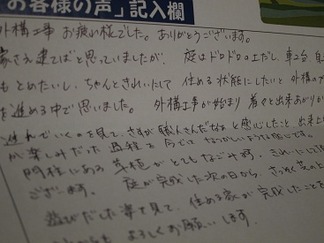 お客様の声」記入欄
外構工事 お疲れ様でした。ありがとうございます。
家さえ建てばと思っていましたが、庭はドロドロの土だし、車2台、自
もとめたいし、ちゃんときれいにして 住める状態にしたいと 外構の
を進める中で思いました。外構工事が始まり 着々と出来あがりが
進んでいくのを見て、さすが職人さんだなぁと感じたこと、出来上
が楽しみだった 過程を
門柱にある 草植がとてもなごやかで、きれいにして
ございます。庭が完成した次の日から、
遊びだした姿を見て、住める家が 完成したことを
よろしくお願いします。